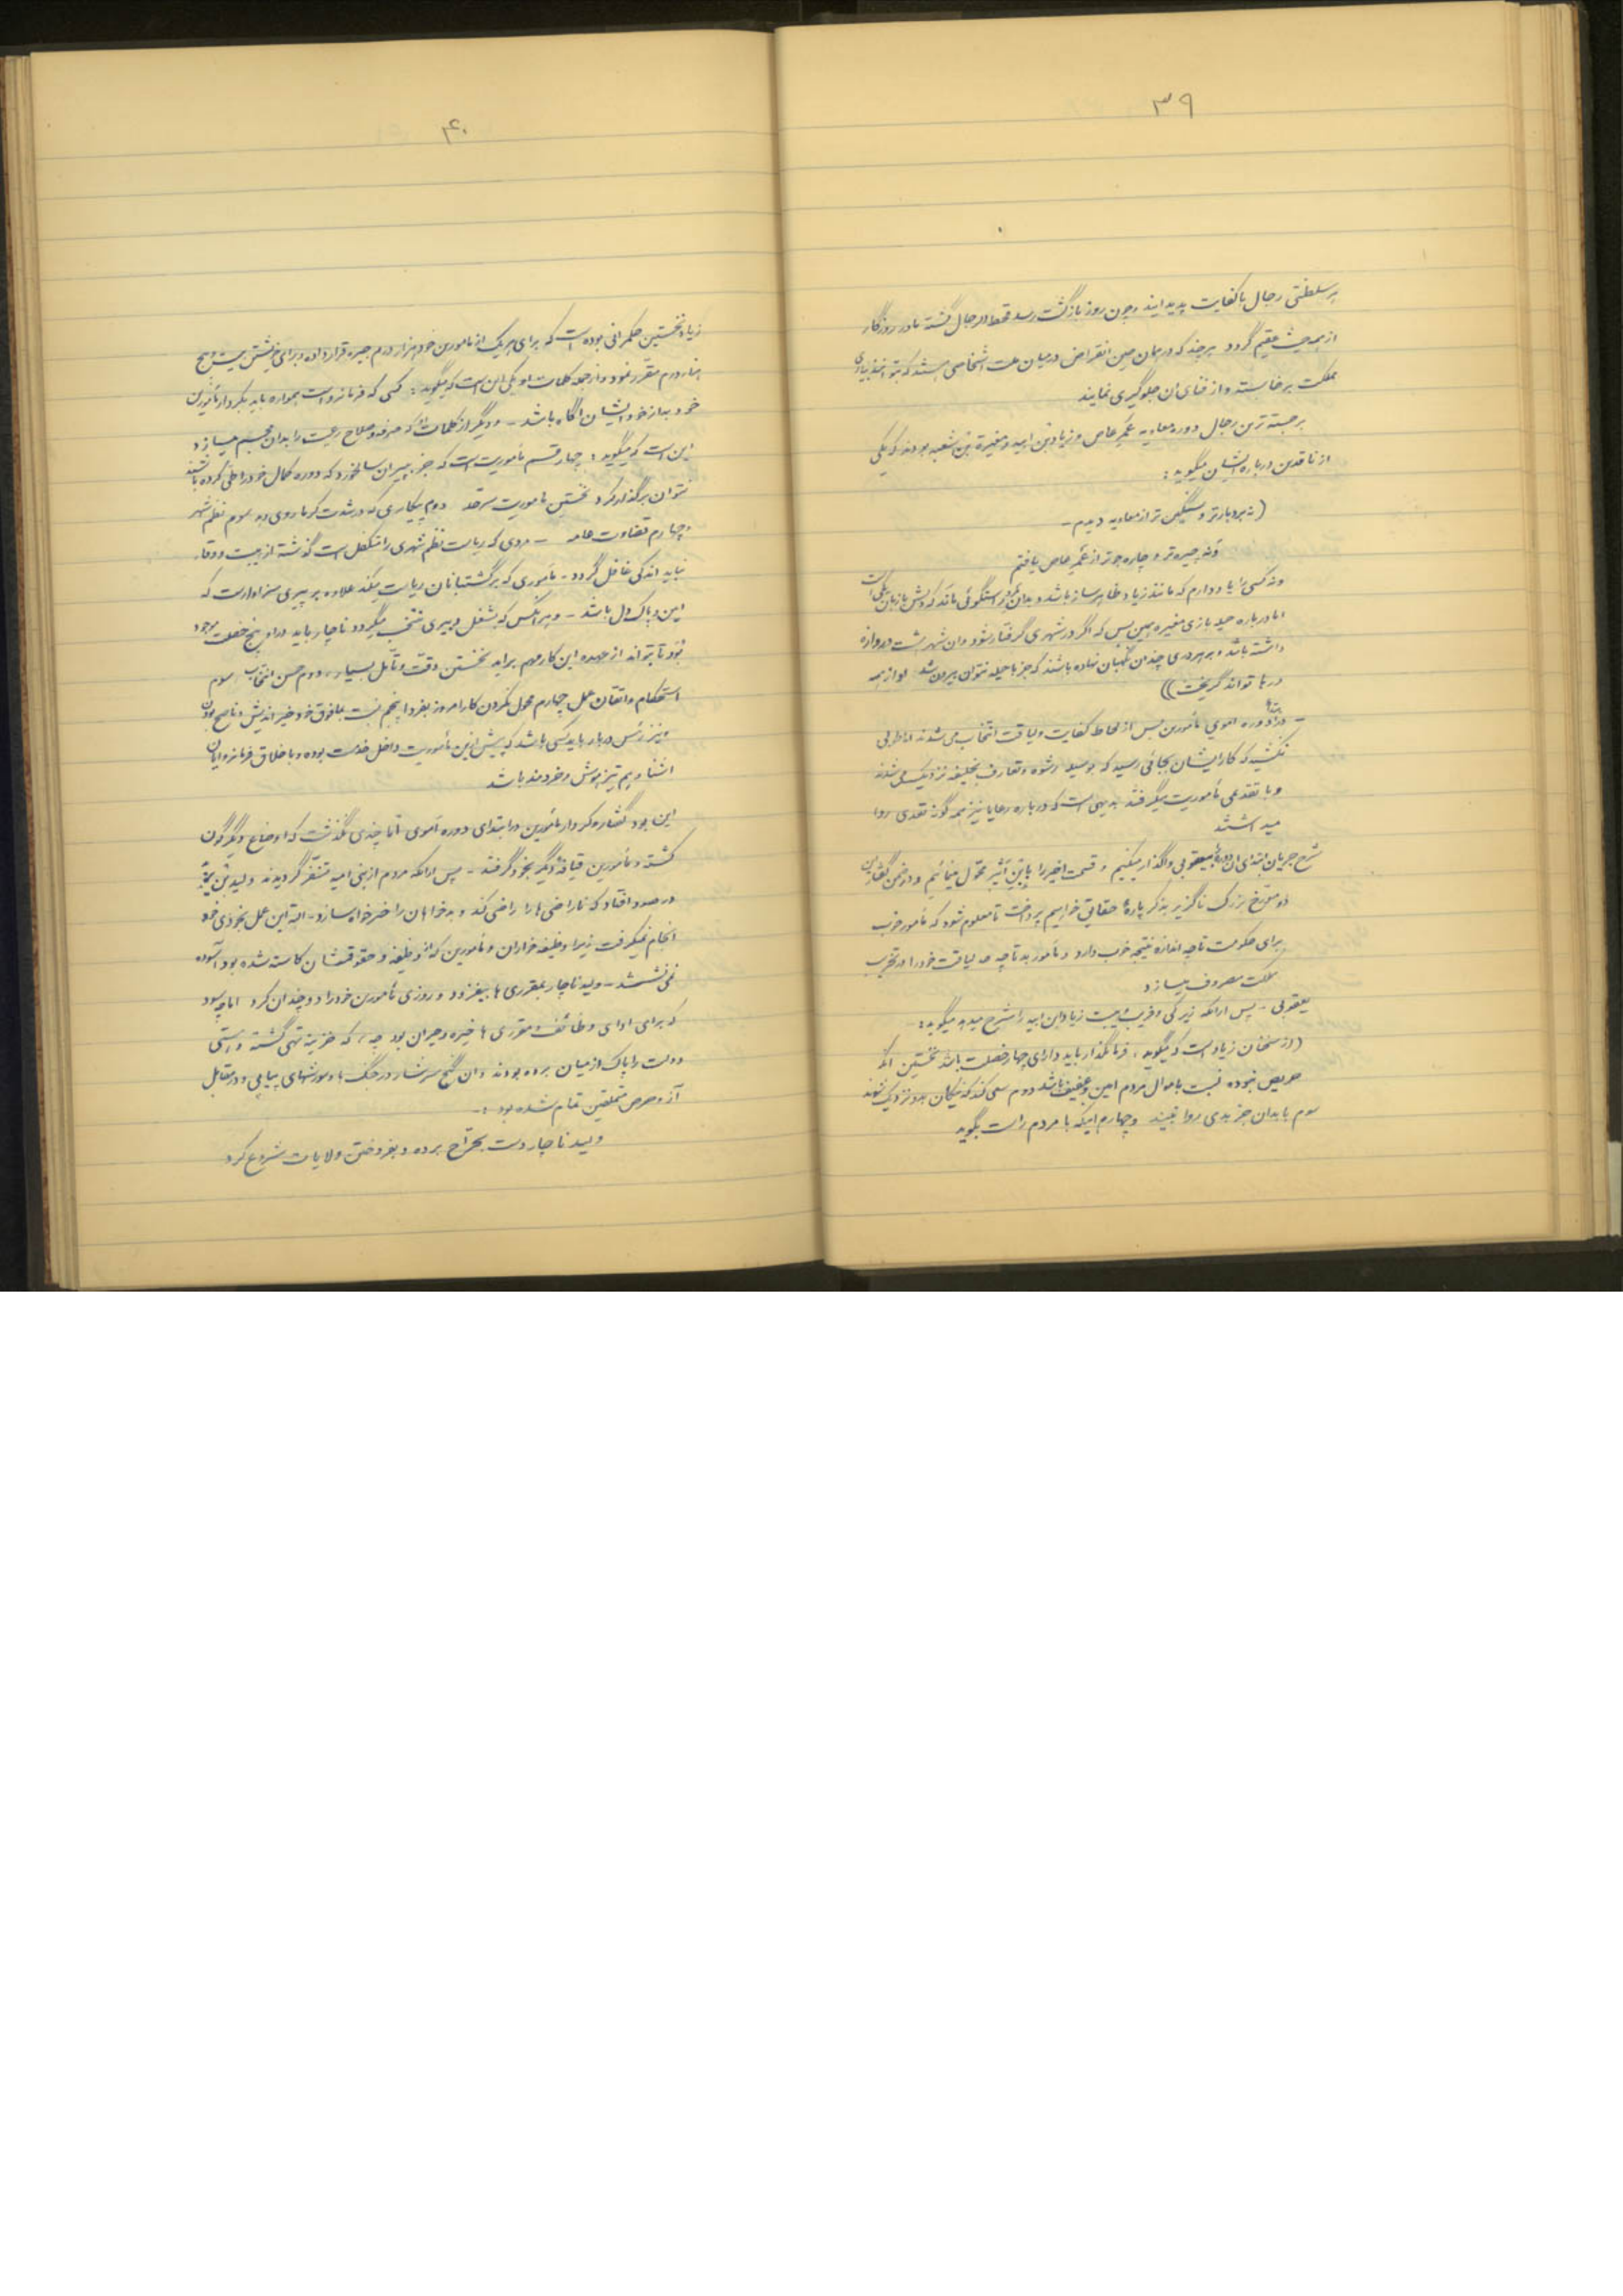 ۳۹
هر سلطنتی رجال با کفایت پدید ایند و چون روز بازگشت رسد قحط الرجال گشته مادر روزگار
از همه حیث عقیم گردد هر چند که در همان حین انقراض در میان ملت اشخاصی هستند که بتوانند بیاری
مملکت برخاسته و از فنای ان جلوگیری نمایند
برجسته ترین رجال دوره معاویه عمر عاص و زیاد بن ابیه و مغیرة بن شعبه بودند که یکی
از ناقدین درباره ایشان میگوید :
(نه بردبارتر و سنگین تر از معاویه دیدم –
و نه چیره تر و چاره جوتر از عمر عاص یافتم
و نه کسی را یاد دارم که مانند زیاد ظاهر ساز باشد و بدان راستگوئی ماند که دلش با زبان یکی است
اما درباره حیله بازی مغیره همین بس که اگر در شهری گرفتار شود و ان شهر هشت دروازه
داشته باشد و بر هر دری چندان نگهبان نهاده باشند که جز با حیله نتوان بیرون شد او از همه
درها تواند گریخت))
– در ابتداء دوره اموی مأمورین بس از لحاظ کفایت و لیاقت انتخاب می شدند اما طولی
نکشید که کار ایشان بجائی رسید که بوسیله رشوه و تعارف بخلیفه نزدیک می شدند
و با تقدیمی مأموریت میگرفتند بدیهی است که درباره رعایا نیز همه گونه تعدی روا
میداشتند
شرح جریان ابتدای ان دوره را بیعقوبی واگذار میکنیم و قسمت اخیر را بابن اثیر محول مینمائیم و در ضمن گفتار این
دو مورخ بزرگ ناگزیر بذکر پارهٔ حقایق خواهیم پرداخت تا معلوم شود که مأمور خوب
برای حکومت تا چه اندازه نتیجه خوب دارد و مأمور بد تا چه حد لیاقت خود را در تخریب
مملکت مصروف میسازد
یعقوبی – پس از انکه زیرکی و فریب و هیبت زیاد ابن ابیه را شرح میدهد میگوید : –
(از سخنان زیاد است که میگوید : فرمانگذار باید دارای چهار خصلت باشد نخستین انکه
حریص نبوده نسبت باموال مردم امین و عفیف باشد دوم سعی کند که نیکان بدو نزدیک شوند
سوم با بدان جز بدی روا نبیند و چهارم اینکه با مردم راست بگوید
۴۰
زیاد نخستین حکمرانی بوده است که برای هر یک از مأمورین خود هزار درم جیره قرار داده و برای خویشتن بیست و پنج
هزار درم مقرر نمود و از جمله کلمات او یکی این است که میگوید : کسی که فرمانرواست همواره باید بکردار مأمورین
خود بداز خود ایشان اگاه باشد – و دیگر از کلمات او که صرفه و صلاح رعیت را بدان مجسم میسازد
این است که میگوید : چهار قسم مأموریت است که جز به پیران سالخورد که دوره کمال خود را طی کرده باشند
نتوان برگذار کرد نخستین مأموریت سرحد دوم پیکاری که در شدت گرما روی دهد سوم نظم شهر
و چهارم قضاوت عامه – مردی که ریاست نظم شهری را متکفل است گذشته از هیبت و وقار
نباید اندکی غافل گردد – مأموری که بر گشتبانان ریاست میکند علاوه بر پیری سزاوار است که
امین و پاک دل باشد – و هر انکس که بشغل دبیری منتخب میگردد ناچار باید در او پنج خصلت موجود
بود تا بتواند از عهده این کار مهم براید نخستین دقت و تأمل بسیار ، دوم حسن انتخاب سوم
استحکام و اتقان عمل چهارم محول نکردن کار امروز بفردا پنجم نسبت بمافوق خود خیر اندیش و ناصح بودن
و نیز رئیس دربار باید کسی باشد که پیش از این مأموریت داخل خدمت بوده و باخلاق فرمانروایان
اشنا و هم تیزهوش و خردمند باشد
این بود گفتار و کردار مأمورین در ابتدای دوره اموی اما چندی نگذشت که اوضاع دیگرگون
گشته و مأمورین قیافهٔ دیگر بخود گرفتند – پس از انکه مردم از بنی امیه متنفر گردیدند ولید بن یزید
در صدد افتاد که ناراضی ها را راضی کند و بدخواهان را خیرخواه سازد – البته این عمل بخودی خود
انجام نمیگرفت زیرا وظیفه خواران و مأمورین که از وظیفه و حقوقشان کاسته شده بود آسوده
نمی نشستند – ولید ناچار بمقرری ها بیفزود و روزی مأمورین خود را دو چندان کرد اما چه سود
که برای ادای وظائف و مقرری ها خیره و حیران بود چه که خزینه تهی گشته و راستی
دولت را پاک از میان برده بودند و ان گنج سرشار در جنگ ها و شورشهای پیاپی و در مقابل
آز و حرص متملقین تمام شده بود : –
ولید ناچار دست بحراج برده و بفروختن ولایات شروع کرد